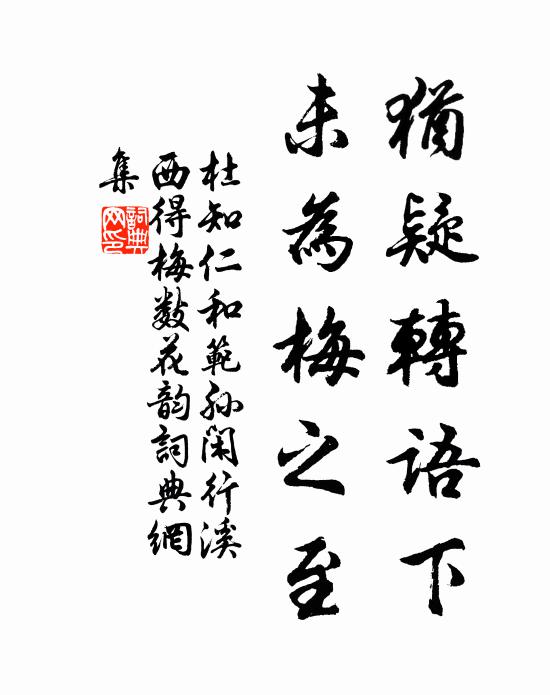 猶疑轉語下
未為梅之至
杜知仁和範孙闲行溪
西得梅数花韵詞典網
集
詞典
网印